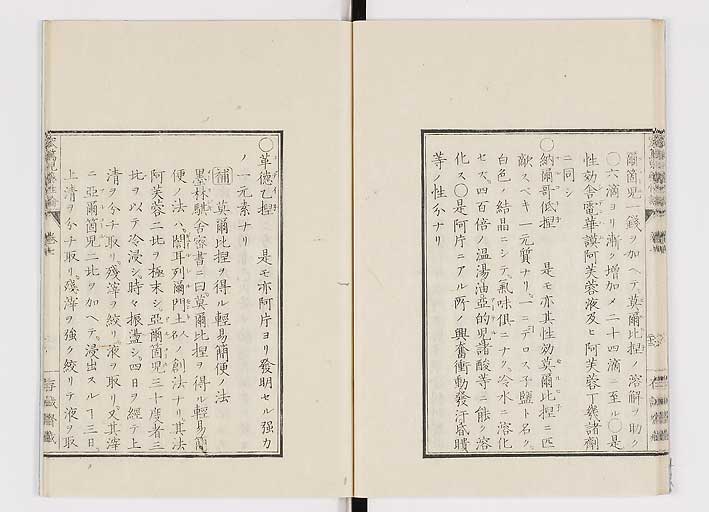 爾箇児一錢ヲ加ヘテ莫爾比捏ノ溶解ヲ助ク
〇六滴ヨリ漸ク増加メ二十四滴ニ至ル〇是
性効舎電華謨阿芙蓉液及ヒ阿芙蓉丁幾諸劑
ニ同シ
〇納爾哥低捏 是モ亦其性効莫爾比捏ニ匹
敵スベキ一元質ナリ、一ニデロス子塩ト名ク。
白色ノ結晶ニシテ、氣味倶ニナク。冷水ニ溶化
セズ。四百倍ノ温湯油亜的児諸酸等ニ能ク溶
化ス〇是阿片ニアル所ノ興奮衝動發汗昏瞶
等ノ性分ナリ
〇革德乙捏 是モ亦阿片ヨリ發明セル强力
ノ一元素ナリ
補 莫爾比捏ヲ得ル輕易簡便ノ法
墨林馳舎密書ニ曰莫爾比捏ヲ得ル輕易簡
便ノ法ハ、閤耳列爾門土人名ノ創法ナリ其法
阿芙蓉二比ヲ極末シ。亜爾箇児三十度者三
比ヲ以テ冷浸シ。時々振盪シ。四日ヲ經テ上
清ヲ分チ取リ。殘滓ヲ絞リ。液ヲ取リ。又其滓
ニ亜爾箇児二比ヲ加ヘテ。浸出スルヿ三日。
上清ヲ分チ取リ。殘滓ヲ強ク絞リテ液ヲ取